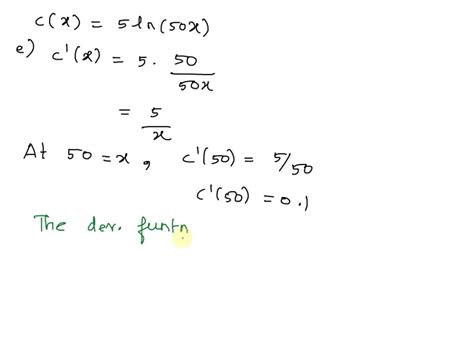 c(x) = 5 ln(50x)
e) c'(x) = 5 · 50/50x
= 5/x
At 50 = x, c'(50) = 5/50
c'(50) = 0.1
The der. funtn